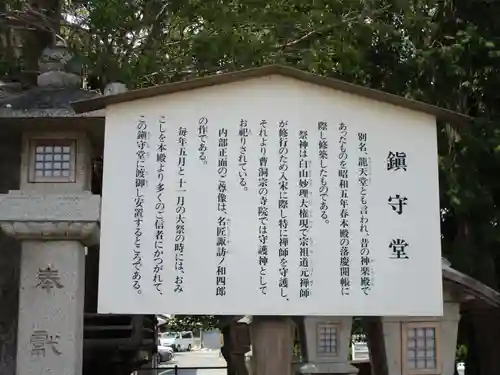 鎮守堂
別名、龍天堂とも言われ、昔の神楽殿で
あったものを昭和五年春本殿の落慶開帳に
際し修築したものである。
祭神は白山妙理大権現で宗祖道元禅師
が修行のため入宋に際し特に禅師を守護し、
それより曹洞宗の寺院では守護神として
お祀りされている。
内部正面のご尊像は、名匠諏訪ノ和四郎
の作である。
毎年五月と十一月の大祭の時には、おみ
こしを本殿より多くのご信者にかつがれて、
この鎮守堂に渡御し安置するところである。
奉
献